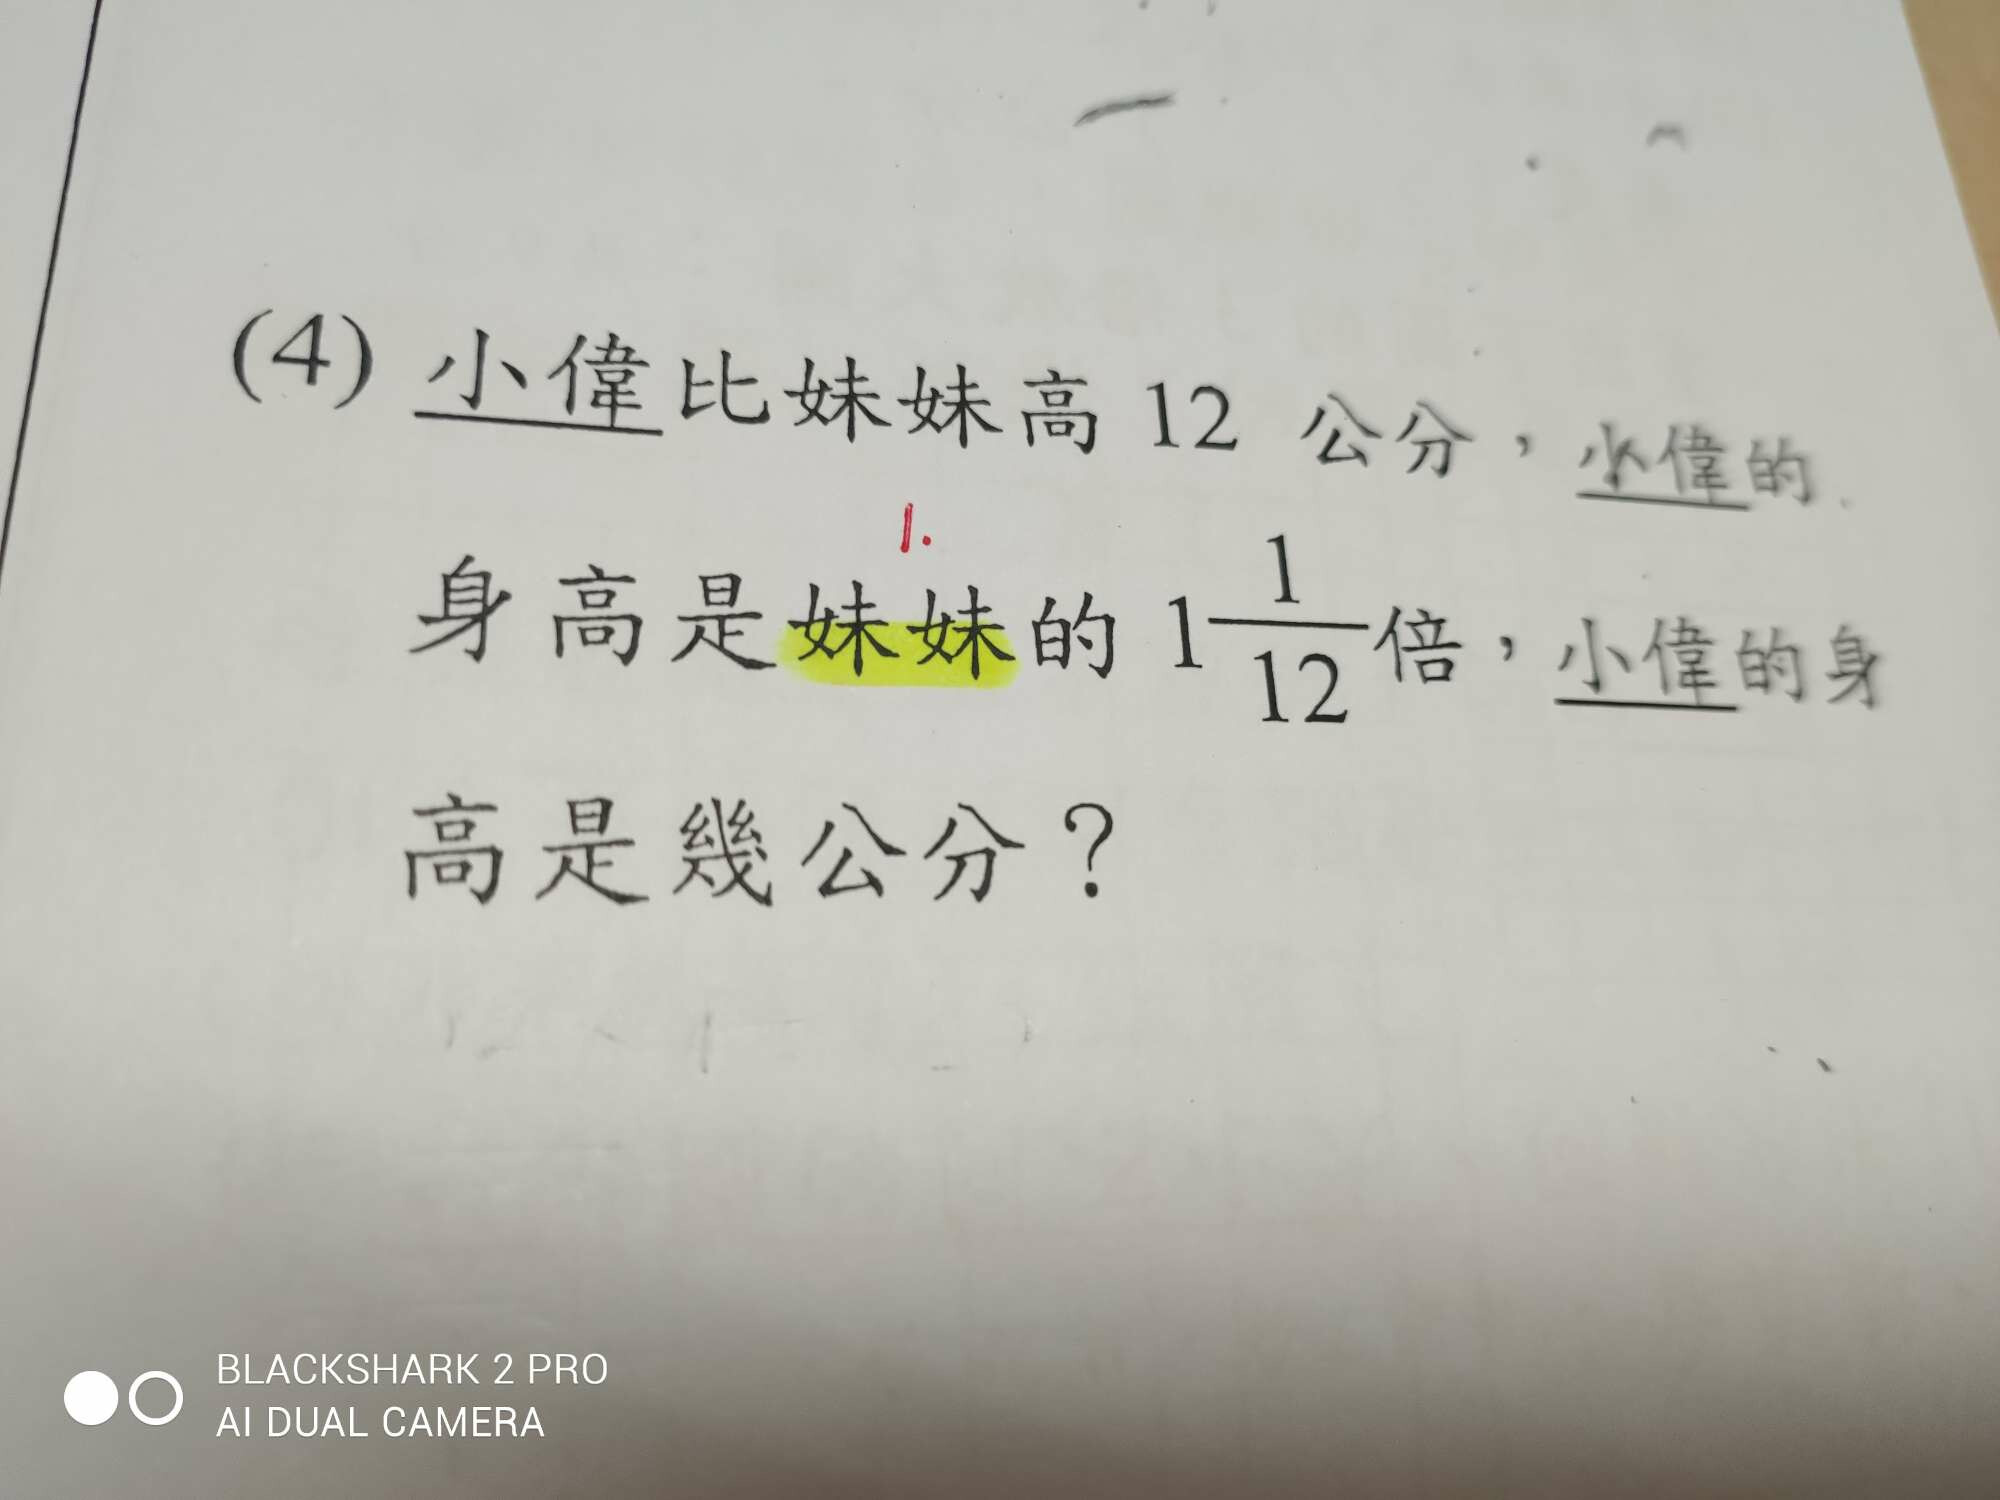 (4) 小偉比妹妹高 12 公分，小偉的
1.
身高是妹妹的 1 1/12 倍，小偉的身
高是幾公分？
BLACKSHARK 2 PRO
AI DUAL CAMERA